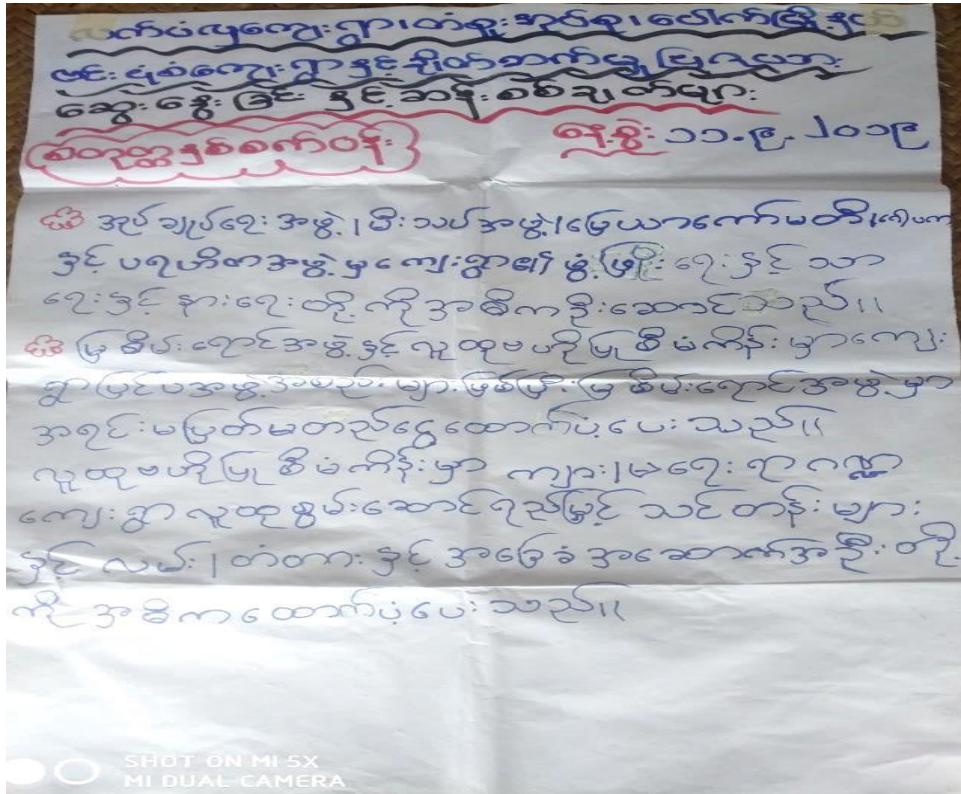 လက်ပံလှကျေးရွာ၊တံစူးအုပ်စု၊ပေါက်မြို့နယ်
ဇင်းပုံစံကျေးရွာနှင့်ချိတ်ဆက်မှုပြဇယား
ဆွေးနွေးခြင်းနှင့်ဆန်းစစ်ချက်များ
စတုတ္ထနှစ်စက်ဝန်း
နေ့စွဲး ၁၁.၉.၂၀၁၉
အုပ်ချုပ်ရေးအဖွဲ့၊မီးသပ်အဖွဲ့၊မြေယာကော်မတီ၊
နှင့် ပရဟိတအဖွဲ့မှကျေးရွာ၏ ဖွံ့ဖြိုးရေးနှင့် သာ
ရေးနှင့် နားရေးတို့ကိုအဓိကဦးဆောင်သည်။
မြစိမ်းရောင်အဖွဲ့နှင့်လူထုဗဟိုပြုစီမံကိန်းမှာကျေး
ရွာပြင်ပအဖွဲ့အစည်းများဖြစ်ပြီးမြစိမ်းရောင်အဖွဲ့မှာ
အရင်းမပြုတ်မတည်ငွေထောက်ပံ့ပေးသည်။
လူထုဗဟိုပြုစီမံကိန်းမှာ ကျား၊မရေးရာဂဏ္ဍ
ကျေးရွာလူထုစွမ်းဆောင်ရည်မြှင့် သင်တန်းများ
နှင့် လမ်း၊တံတားနှင့်အခြေခံအဆောက်အဦးတို့
ကိုအဓိကထောက်ပံ့ပေးသည်။
SHOT ON MI 5X
MI DUAL CAMERA